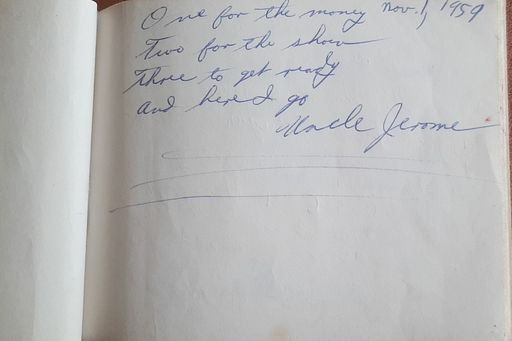 One for the money Nov. 1, 1959
Two for the show
Three to get ready
and here I go
Uncle Jerome